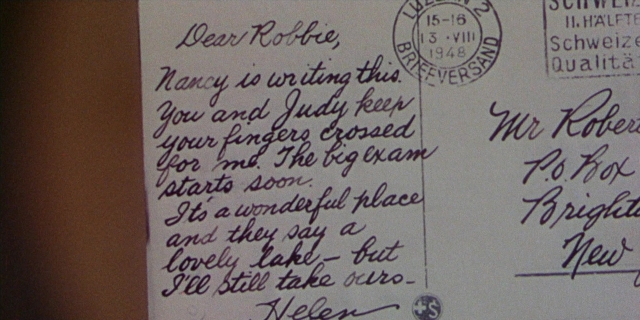 Dear Robbie,
Nancy is writing this.
You and Judy keep
your fingers crossed
for me. The big exam
starts soon.
It's a wonderful place
and they say a
lovely lake – but
I'll still take ours –
Helen
15-16
13.VIII
1948
BRIEFVERSAND
II. HÄLFTE
Schweize
Qualitä
Mr Robert
P.O. Box
Bright
New